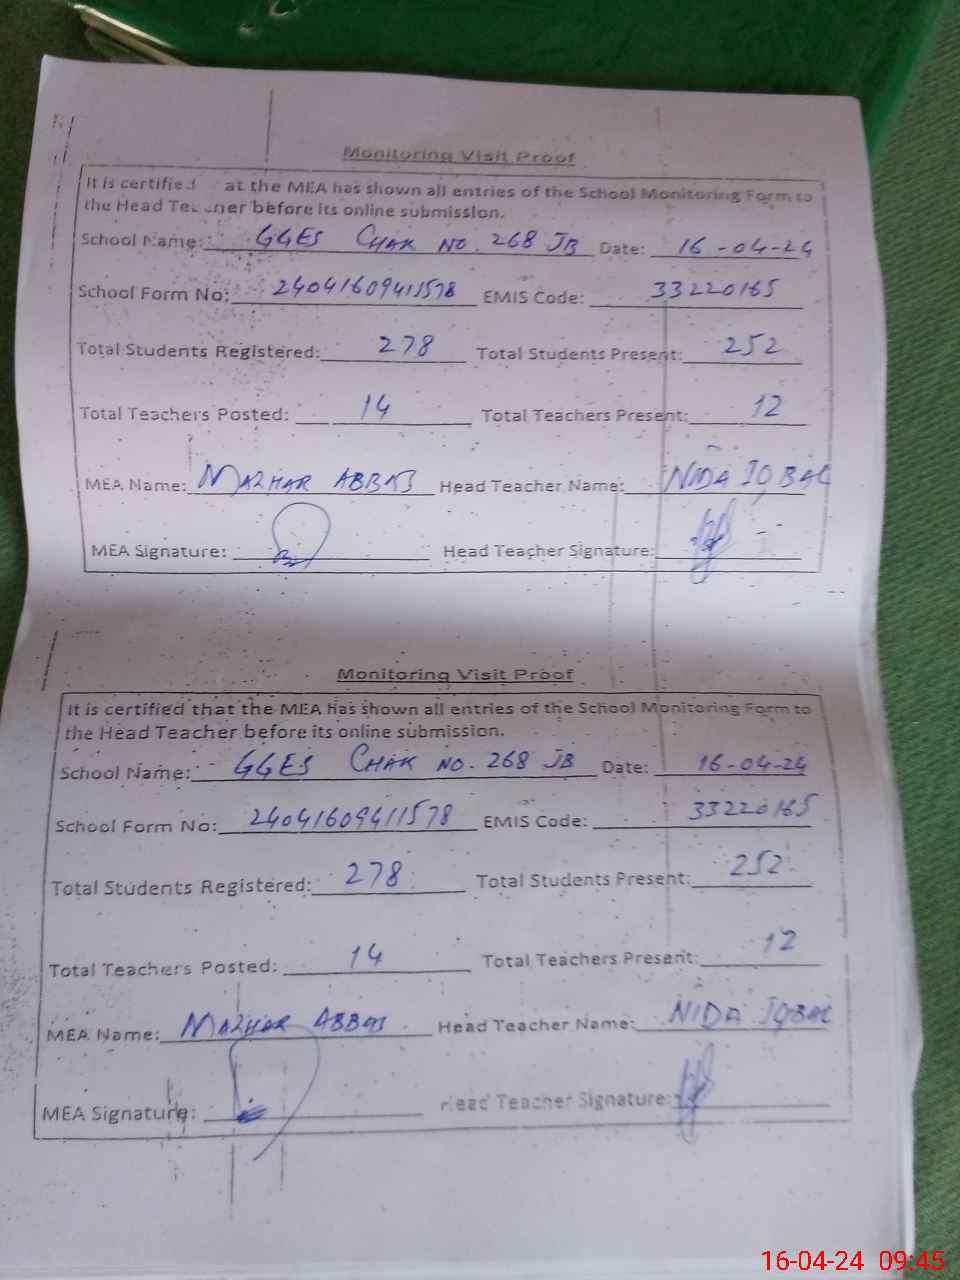 Monitoring Visit Proof
It is certified at the MEA has shown all entries of the School Monitoring Form to
the Head Teacher before its online submission.
School Name: GGES CHAK NO. 268 JB Date: 16-04-24
School Form No: 24041609411578 EMIS Code: 33220165
Total Students Registered: 278 Total Students Present: 252
Total Teachers Posted: 14 Total Teachers Present: 12
MEA Name: MAZHAR ABBAS Head Teacher Name: NIDA IQBAL
MEA Signature: Head Teacher Signature:
Monitoring Visit Proof
It is certified that the MEA has shown all entries of the School Monitoring Form to
the Head Teacher before its online submission.
School Name: GGES CHAK NO. 268 JB Date: 16-04-24
School Form No: 24041609411578 EMIS Code: 33220165
Total Students Registered: 278 Total Students Present: 252
Total Teachers Posted: 14 Total Teachers Present: 12
MEA Name: MAZHAR ABBAS Head Teacher Name: NIDA IQBAL
MEA Signature: Head Teacher Signature:
16-04-24 09:45